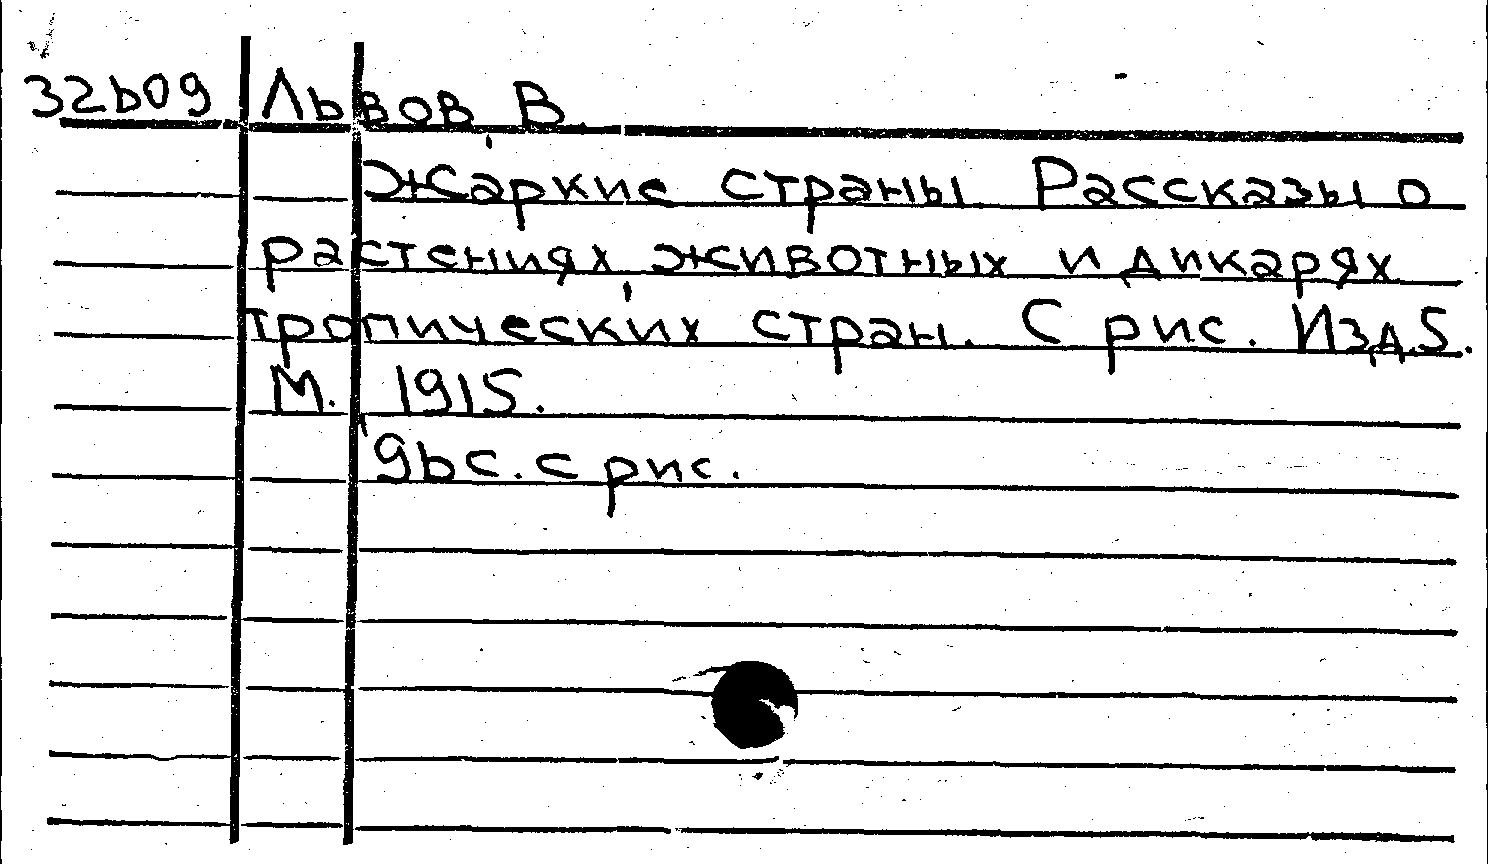 32b09 Львов, В.
Жаркие страны. Рассказы о
растениях, животных и дикарях
тропических стран. С рис. Изд. 5.
М. 1915.
96с. с рис.